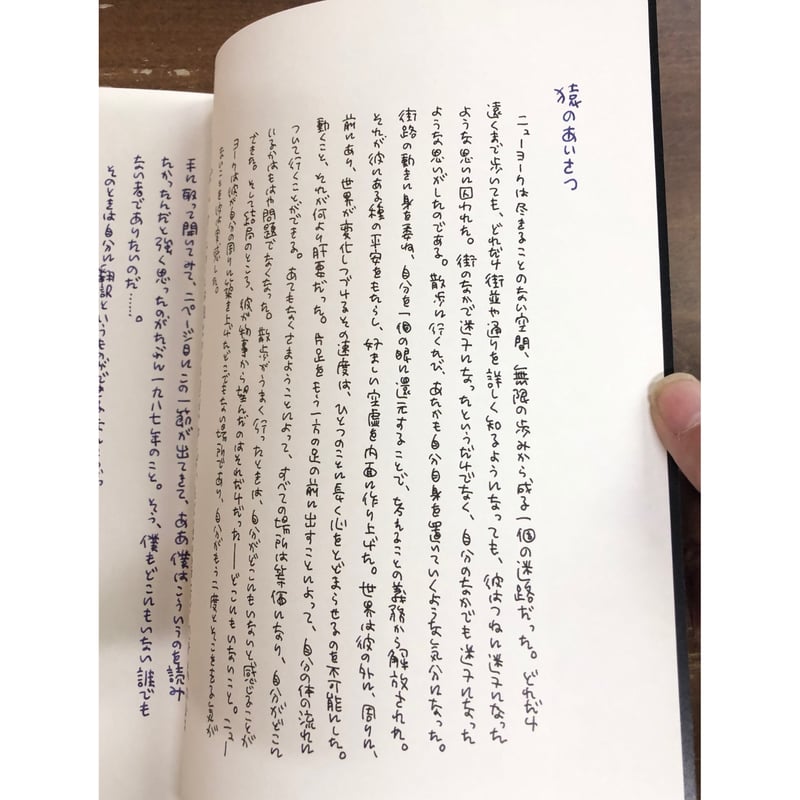 猿のあいさつ
ニューヨークは尽きることのない空間、無限の歩みから成る一個の迷路だった。どれだけ
遠くまで歩いても、どれだけ街並や通りを詳しく知るようになっても、彼はつねに迷子になった
ような思いに囚われた。街のなかで迷子になったというだけでなく、自分のなかでも迷子になった
ような思いがしたのである。散歩に行くたび、あたかも自分自身を置いていくような気分になった。
街路の動きに身を委ね、自分を一個の眼に還元することで、考えることの義務から解放された。
それが彼にある種の平安をもたらし、好ましい空虚を内面に作り上げた。世界は彼の外に、周りに、
前にあり、世界が変化しつづけるその速度は、ひとつのことに長く心をとどまらせるのを不可能にした。
動くこと、それが何より肝要だった。片足をもう一方の足の前に出すことによって、自分の体の流れに
ついて行くことができる。あてもなくさまようことによって、すべての場所は等価になり、自分がどこに
いるかはもはや問題でなくなった。散歩がうまく行ったときは、自分がどこにもいないと感じることが
できた。そして結局のところ、彼が物事から望んだのはそれだけだった――どこにもいないこと。ニュー
ヨークは彼が自分の周りに築き上げたどこでもない場所であり、自分がもう二度とそこを去る気が
ないことを彼は実感した。
手に取って開いてみて、二ページ目にこの一節が出てきて、ああ僕はこういうのを読み
たかったんだと強く思ったのがたぶん一九八七年のこと。そう、僕もどこにもいない誰でも
ない者でありたいのだ……。
そのときは自分に翻訳というものができる